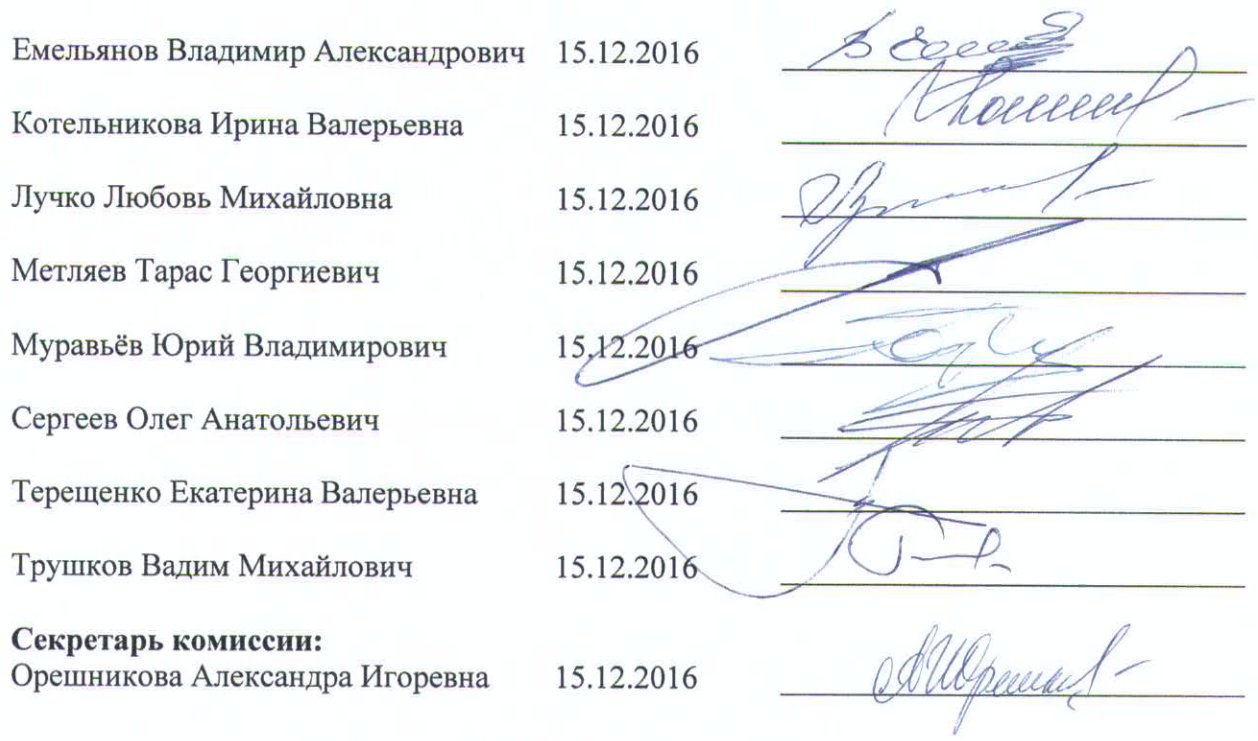 Емельянов Владимир Александрович 15.12.2016
Котельникова Ирина Валерьевна 15.12.2016
Лучко Любовь Михайловна 15.12.2016
Метляев Тарас Георгиевич 15.12.2016
Муравьёв Юрий Владимирович 15.12.2016
Сергеев Олег Анатольевич 15.12.2016
Терещенко Екатерина Валерьевна 15.12.2016
Трушков Вадим Михайлович 15.12.2016
Секретарь комиссии:
Орешникова Александра Игоревна 15.12.2016